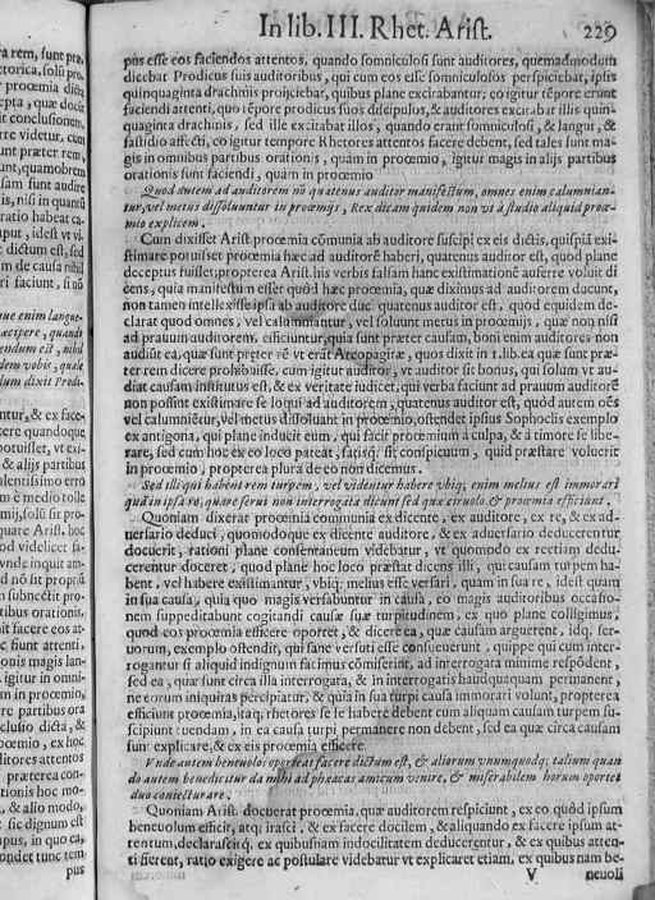 In lib. III. Rhet. Arist. 229
a rem, sunt præ-
proœmia dicta
cepta, quæ docu
it conclusionem,
rre videtur, cum
unt præter rem,
sunt, quamobrem
sam sunt audire
is, nisi in quantū
ratio habeat ca-
put, idest vt vi-
dictum est, sed
m de causa nihil
ri faciunt, si nō
que enim langue-
accipere, quandi
endum est, nihil
dem vobis, quale
dum dixit Prodi-
ntur, & ex face-
cere quandoque
potuisset, vt exi-
& alijs partibus
m è medio tolle
mij, solū sit pro-
quare Arist. hoc
od videlicet fa-
vnde inquit am-
d nō sit propriū
n subnectit pro-
tibus orationis,
it facere eos at-
c fiunt attenti,
onis magis lan-
igitur in omni-
m in proœmio,
re partibus ora
clusio dicta, &
oœmio, ex hoc
ditores attentos
præterea con-
tionis hoc mo-
, & alio modo,
sic dignum est
apus, in quo ea,
ondet tunc tem
pus
pus esse eos faciendos attentos, quando somniculosi sunt auditores, quemadmodum
dicebat Prodicus suis auditoribus, qui cum eos esse somniculosos perspiciebat, ipsis
quinquaginta drachmis proijciebat, quibus plane excitabantur; eo igitur tēpore erunt
faciendi attenti, quo tēpore prodicus suos discipulos, & auditores excitabat illis quin-
quaginta drachmis, sed ille excitabat illos, quando erant somniculosi, & langui, &
fastidio affecti, eo igitur tempore Rhetores attentos facere debent, sed tales sunt ma-
gis in omnibus partibus orationis, quam in proœmio, igitur magis in alijs partibus
orationis sunt faciendi, quam in proœmio
Quod autem ad auditorem nō quatenus auditor manifestum, omnes enim calumnian-
tur, vel metus dissoluuntur in proœmijs, Rex dicam quidem non vt à studio aliquid proœ-
mio explicem.
Cum dixisset Arist. proœmia cōmunia ab auditore suscipi ex eis dictis, quispiā exi-
stimare potuisset proœmia hæc ad auditorē haberi, quatenus auditor est, quod plane
deceptus fuisset; propterea Arist. his verbis falsam hanc existimationē auferre voluit di
cens, quia manifestum esset quòd hæc proœmia, quæ diximus ad auditorem ducunt,
non tamen intellexisse ipsa ab auditore duc quatenus auditor est, quod equidem de-
clarat quod omnes, vel calumniantur, vel soluunt metus in proœmijs, quæ non nisi
ad prauum auditorem, efficiuntur, quia sunt præter causam, boni enim auditores non
audiūt ea, quæ sunt præter rē vt erāt Areopagitæ, quos dixit in 1. lib. ea quæ sunt præ-
ter rem dicere prohibuisse, cum igitur auditor, vt auditor sit bonus, qui solum vt au-
diat causam institutus est, & ex veritate iudicet, qui verba faciunt ad prauum auditorē
non possint existimare se loqui ad auditorem, quatenus auditor est, quòd autem oēs
vel calumniētur, vel metus dissoluant in proœmio, ostendet ipsius Sophoclis exemplo
ex antigona, qui plane inducit eum, qui facit proœmium à culpa, & à timore se libe-
rare, sed cum hoc ex eo loco pateat, satisq; sit conspicuum, quid præstare voluerit
in proœmio, propterea plura de eo non dicemus.
Sed illi qui habent rem turpem, vel videntur habere vbiq; enim melius est immorari
quā in ipsa re, quare serui non interrogata dicunt sed quæ circulo & proœmia efficiunt.
Quoniam dixerat proœmia communia ex dicente, ex auditore, ex re, & ex ad-
uersario deduci, quomodoque ex dicente auditore, & ex aduersario deducerentur
docuerit, rationi plane consentaneum videbatur, vt quomodo ex re etiam dedu-
cerentur doceret, quod plane hoc loco præstat dicens illi, qui causam turpem ha-
bent, vel habere existimantur, vbiq; melius esse versari, quam in sua re, idest quam
in sua causa, quia quo magis versabuntur in causa, eo magis auditoribus occasio-
nem suppeditabunt cogitandi causæ suæ turpitudinem, ex quo plane colligimus,
quod eos proœmia efficere oportet, & dicere ea, quæ causam arguerent, idq; ser-
uorum, exemplo ostendit, qui sane versuti esse consueuerunt, quippe qui cum inter-
rogantur si aliquid indignum facimus cōmiserint, ad interrogata minime respōdent,
sed ea, quæ sunt circa illa interrogata, & in interrogatis haudquaquam permanent,
ne eorum iniquitas percipiatur, & quia in sua turpi causa immorari volunt, propterea
efficiunt proœmia, itaq; rhetores se se habere debent cum aliquam causam turpem su-
scipiunt tuendam, in ea causa turpi permanere non debent, sed ea quæ circa causam
sunt explicare, & ex eis proœmia efficere.
Vnde autem beneuolos oporteat facere dictum est, & aliorum vnumquodq; talium quan
do autem benedicitur da mihi ad phæacas amicum venire, & miserabilem horum oportet
duo coniecturare.
Quoniam Arist. docuerat proœmia, quæ auditorem respiciunt, ex eo quòd ipsum
beneuolum efficit, atq; irasci, & ex facere docilem, & aliquando ex facere ipsum at-
tentum, declarascitq. ex quibusnam indocilitatem deducerentur, & ex quibus atten-
ti fierent, ratio exigere ac postulare videbatur vt explicaret etiam, ex quibus nam be-
V neuoli